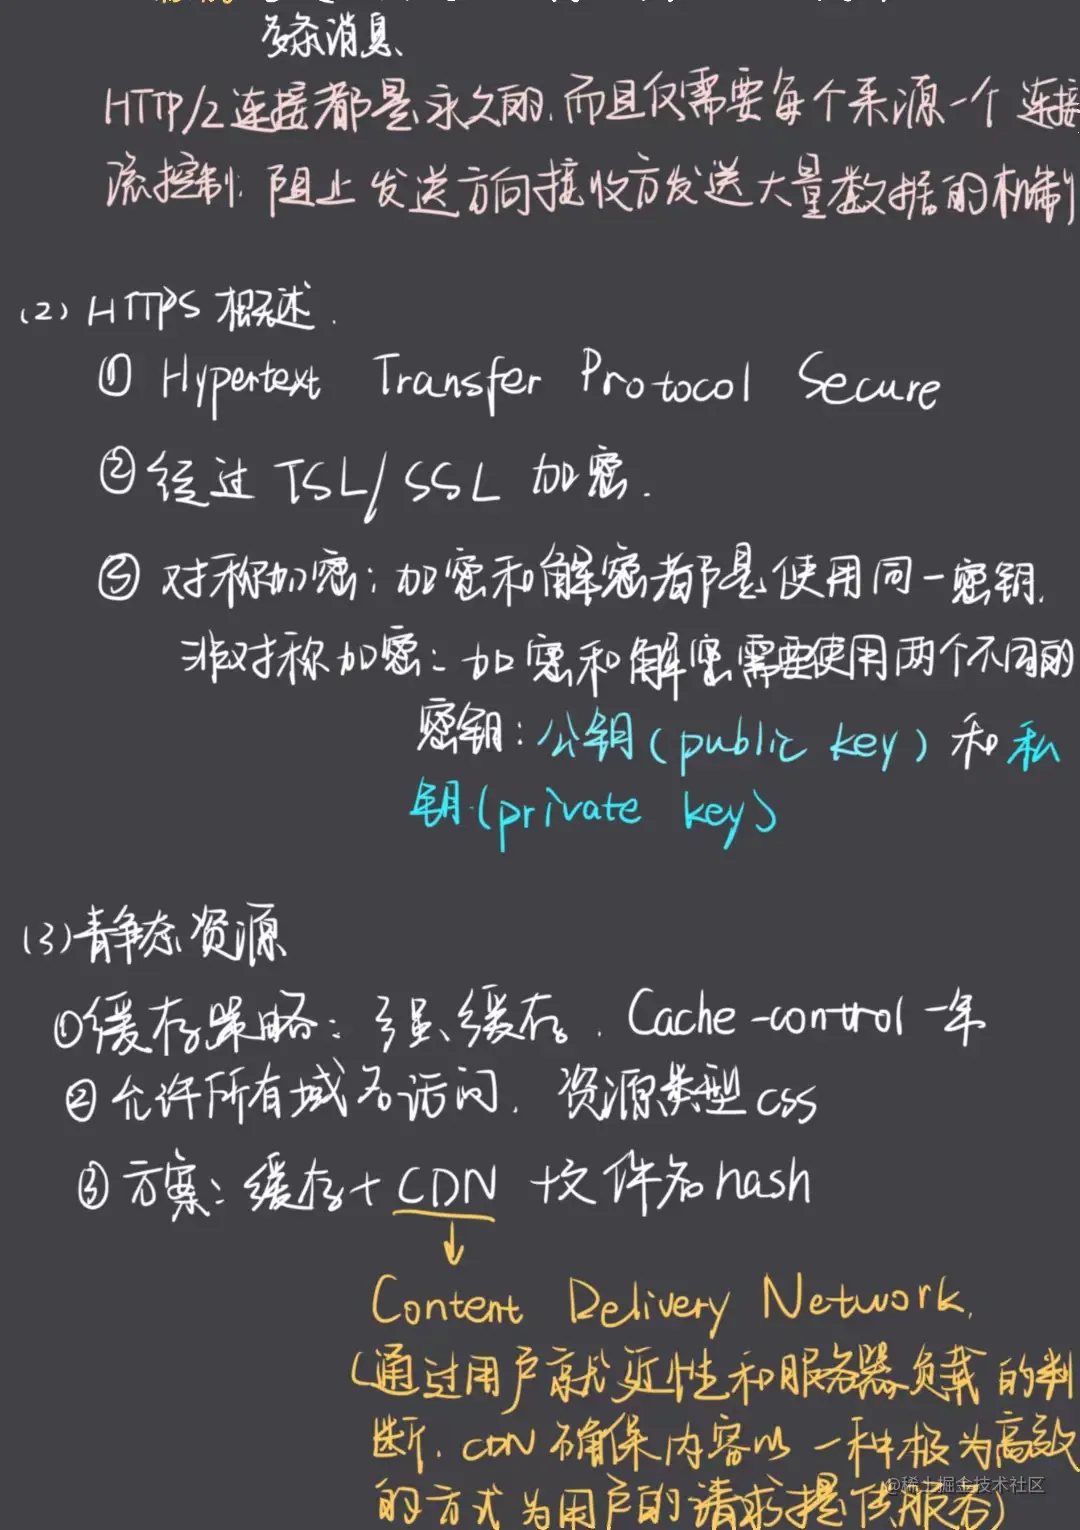 多条消息
HTTP/2连接都是永久的,而且仅需要每个来源一个连接
流控制:阻止发送方向接收方发送大量数据的机制
(2) HTTPS 概述.
① Hypertext Transfer Protocol Secure
② 经过 TSL/SSL 加密.
③ 对称加密:加密和解密都是使用同一密钥.
非对称加密:加密和解密需要使用两个不同的
密钥:公钥(public key)和私
钥(private key)
(3)静态资源
①缓存策略:强缓存.Cache-control 一年
②允许所有域名访问.资源类型css
③方案:缓存+CDN+文件名hash
Content Delivery Network.
(通过用户就近性和服务器负载的判
断,CDN确保内容以一种极为高效
的方式为用户的请求提供服务)
@稀土掘金技术社区